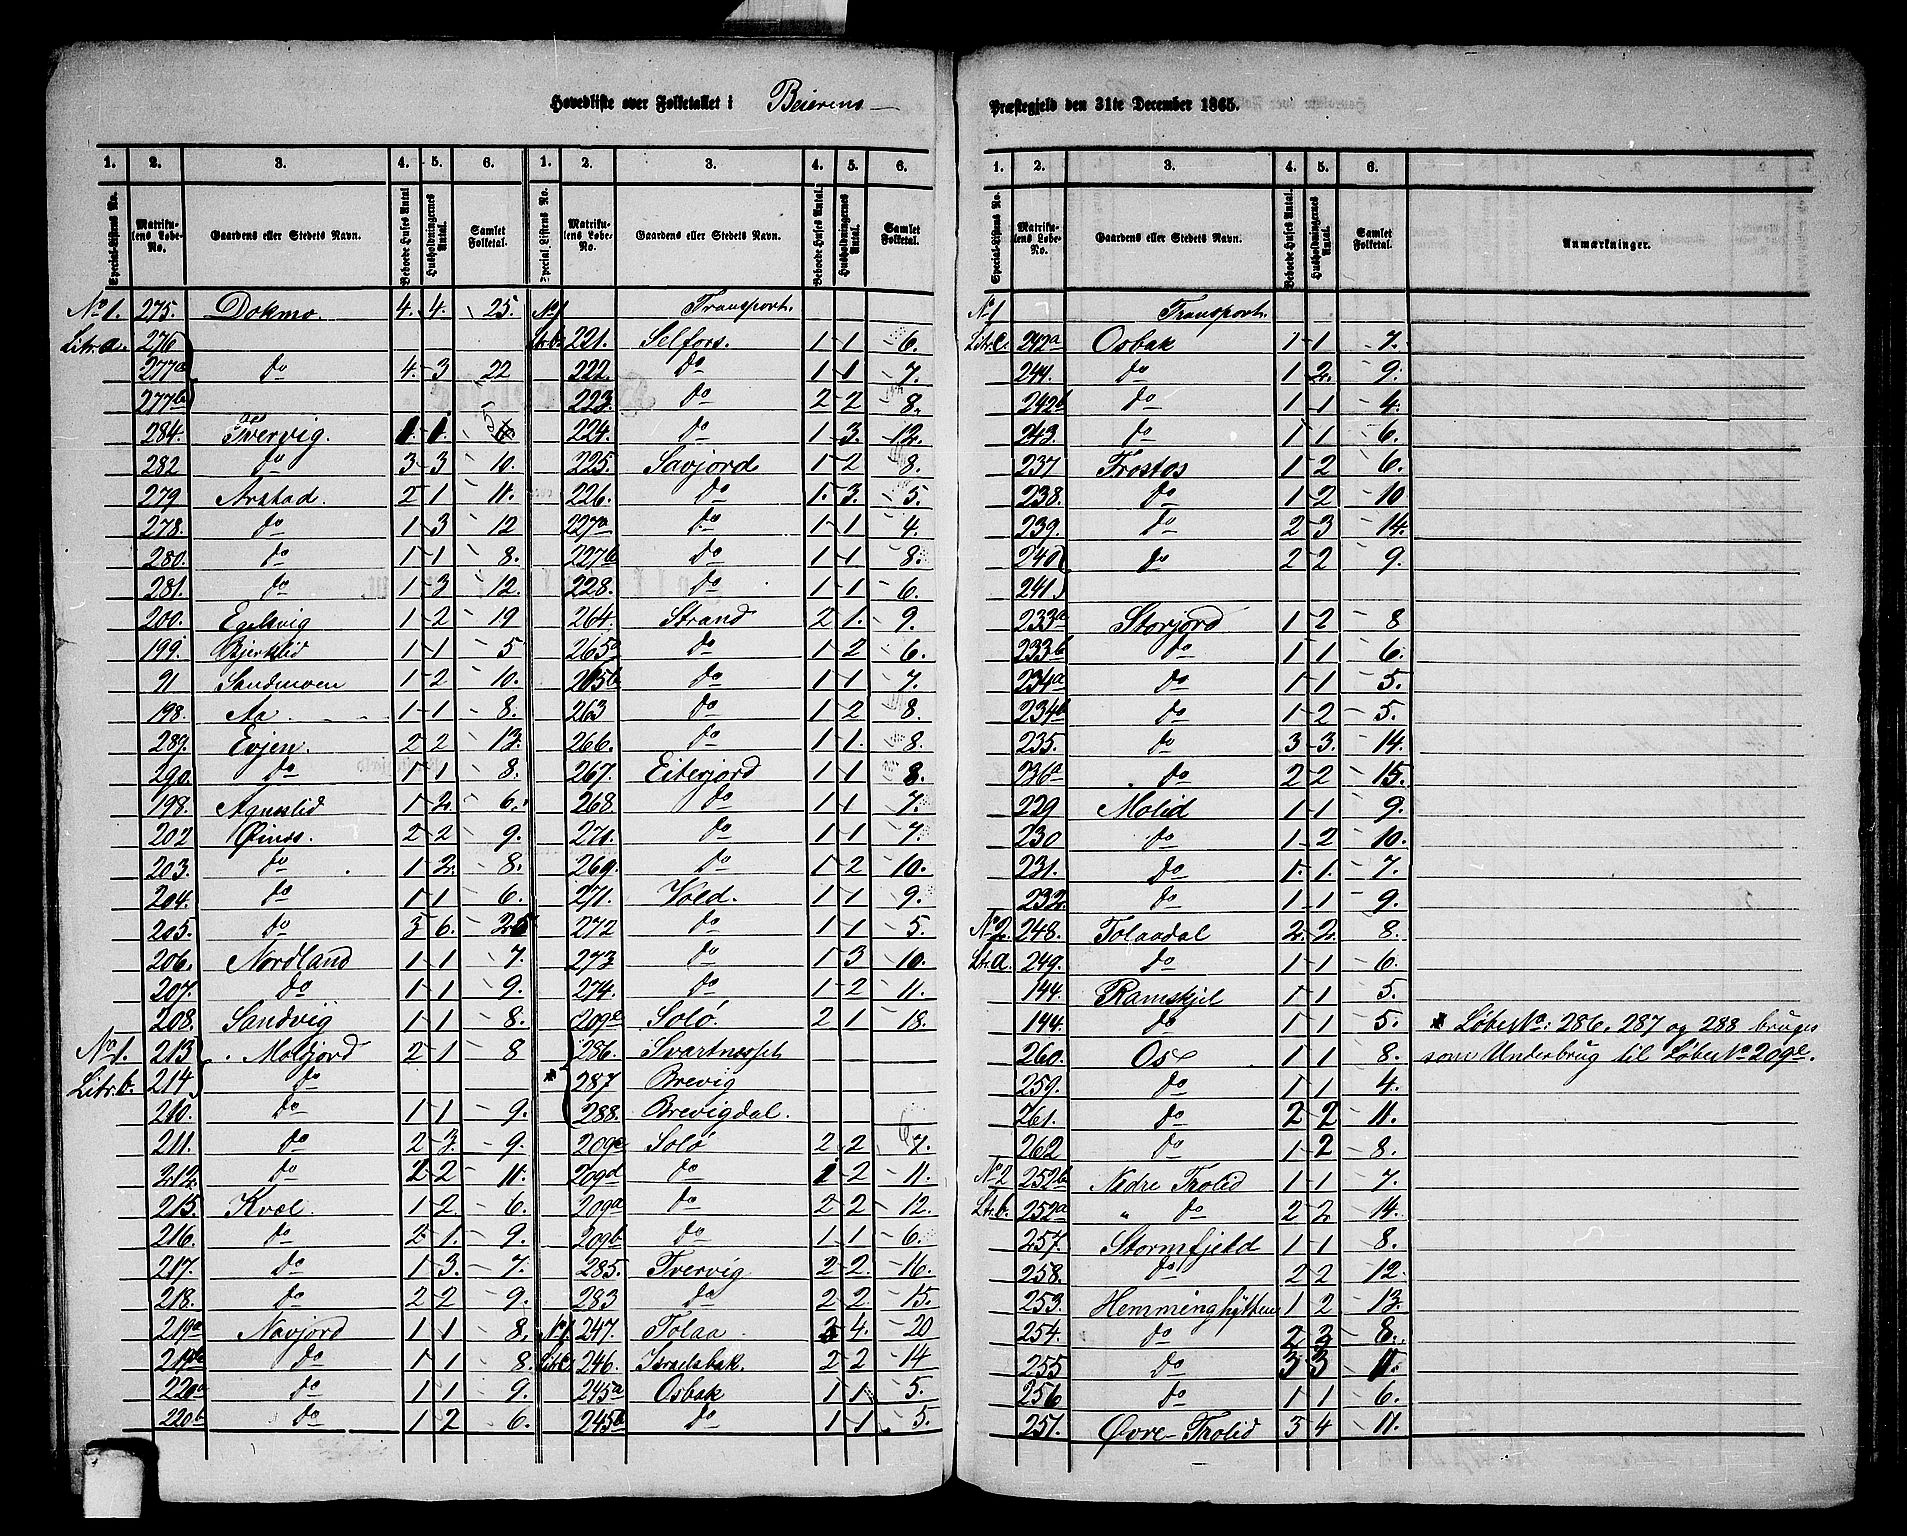 Hovedliste over Folketallet i Beierens Præstegjeld den 31te December 1865.
1. 2. 3. 4. 5. 6. 1. 2. 3. 4. 5. 6.
Special-Listens No. Matrikulens Løbe-No. Gaardens eller Stedets Navn. Beboede Huses Antal Husholdningernes Antal. Samlet Folketal. Special-Listens No. Matrikulens Løbe-No. Gaardens eller Stedets Navn. Beboede Huses Antal. Husholdningernes Antal. Samlet Folketal.
No 1. 275. Dokmo. 4. 4. 25.
Litr. a. 276
277a do 4. 3 22
277b
284. Tvervig. 1. 1. 5
282 do 3 3 10.
279 Arstad. 2 1 11.
278. do 1 3 12
280. do 1 1 8.
281. do 1 3 12.
200. Egelvig 1 2 19
199. Bjerklid 1 1 5
91 Sandmoen 1 2 10.
198. Aa 1 1 8.
289. Evjen. 2 2 13.
290. do 1 1 8.
198. Agneslid 1 2. 6.
202 Øines. 2 2 9.
203. do 1 2. 8.
204. do 1 1 6.
205. do 3 6. 25
206. Nordland 1 1 7.
207. do 1 1 9.
208. Sandvig 1 1 8.
No 1. 213 Moldjord 2 1 8
Litr. b. 214 do
210. do 1 1 9.
211. do 2 3. 9.
212. do 2 2 11.
215. Kvæl. 1 2. 6.
216. do 2 1. 9.
217. do 1 3. 7.
218. do 2 2 9.
219a Navjord 1 1 8.
219b do 1 1 8.
220a do 1 1 9.
220b do 1 2 6.
No 1 Transport.
Litr. b. 221. Selfors. 1 1 6.
222. do 1 1 7.
223. do 2 2 8.
224. do 1 3. 12.
225. Savjord 1 2 8.
226. do 1. 3. 5.
227a do 1 1 4.
227b do 1 1 8.
228. do 1 1 6.
264. Strand 2 1. 9.
265a do 1 2 6.
265b do 1 1 7.
263 do 1 2 8.
266. do 1 1. 8.
267. Eiterjord 1 1 8.
268. do 1 1 7.
271. do 1 1 7.
269. do 1 2 10.
271. Vold. 1 1 9.
272 do 1 1 5.
273 do 1 3 10.
274. do 1 2 11.
209c Solö. 2 1 18.
286. Svartnæsset
* 287 Brevig
288. Brevigdal.
209e Solö 2 2 7.
209d do 1 2 11.
209a do 2 2 12.
209b do 1 1 6.
285. Tvervig 2 2. 16.
283 do 2 2. 15.
No 1. 247. Tolaa 4. 20
Litr. C 246. Israelsbak. 2 2 14
245a Osbak 1 1 5.
245b do 1 1 5.
1. 2. 3. 4. 5. 6.
Special-Listens No. Matrikulens Løbe-No. Gaardens eller Stedets Navn. Beboede Huses Antal. Husholdningernes Antal. Samlet Folketal. Anmærkninger.
No 1 Transport.
Litr. C. 242a Osbak 1 1 7.
244. do 1 2. 9.
242b do 1 1 4.
243. do 1 1 6.
237 Frostos 1 2 6.
238. do 1 2 10
239. do 2 3 14.
240 do 2 2 9.
241.
233a Storjord 1 2 8
233b do 1 1 6.
234a do 1 1 5.
234b do 1 2 5.
235. do 3 3. 14.
236a do 2 2 15.
229 Molid 1 1 9.
230 do 1 2 10.
231. do 1. 1. 7.
232. do 1 1 9.
No 2. 248. Tolaadal 2. 2. 8.
Ltr. a. 249. do 1 1 6.
144. Ramskjel 1 1 5.
144. do 1 1 5. * Løbe No: 286, 287 og 288 bruges
260. Os 1 1 8. som Underbrug til Løbe No 209e.
259. do 1 1 4.
261. do 2 2 11.
262 do 1 2 8.
No 2 252b Nedre Trolid 1 1 7.
Ltr. b. 252a " do 2 2. 14.
257. Stormfjeld 1 1 8.
258. do 2 2 12.
253. Hemminghytten 1 2 13.
254. do 2 2 8.
255 do 3 3 11.
256 do 1 1 6.
251. Øvre Trolid 3 4 11.